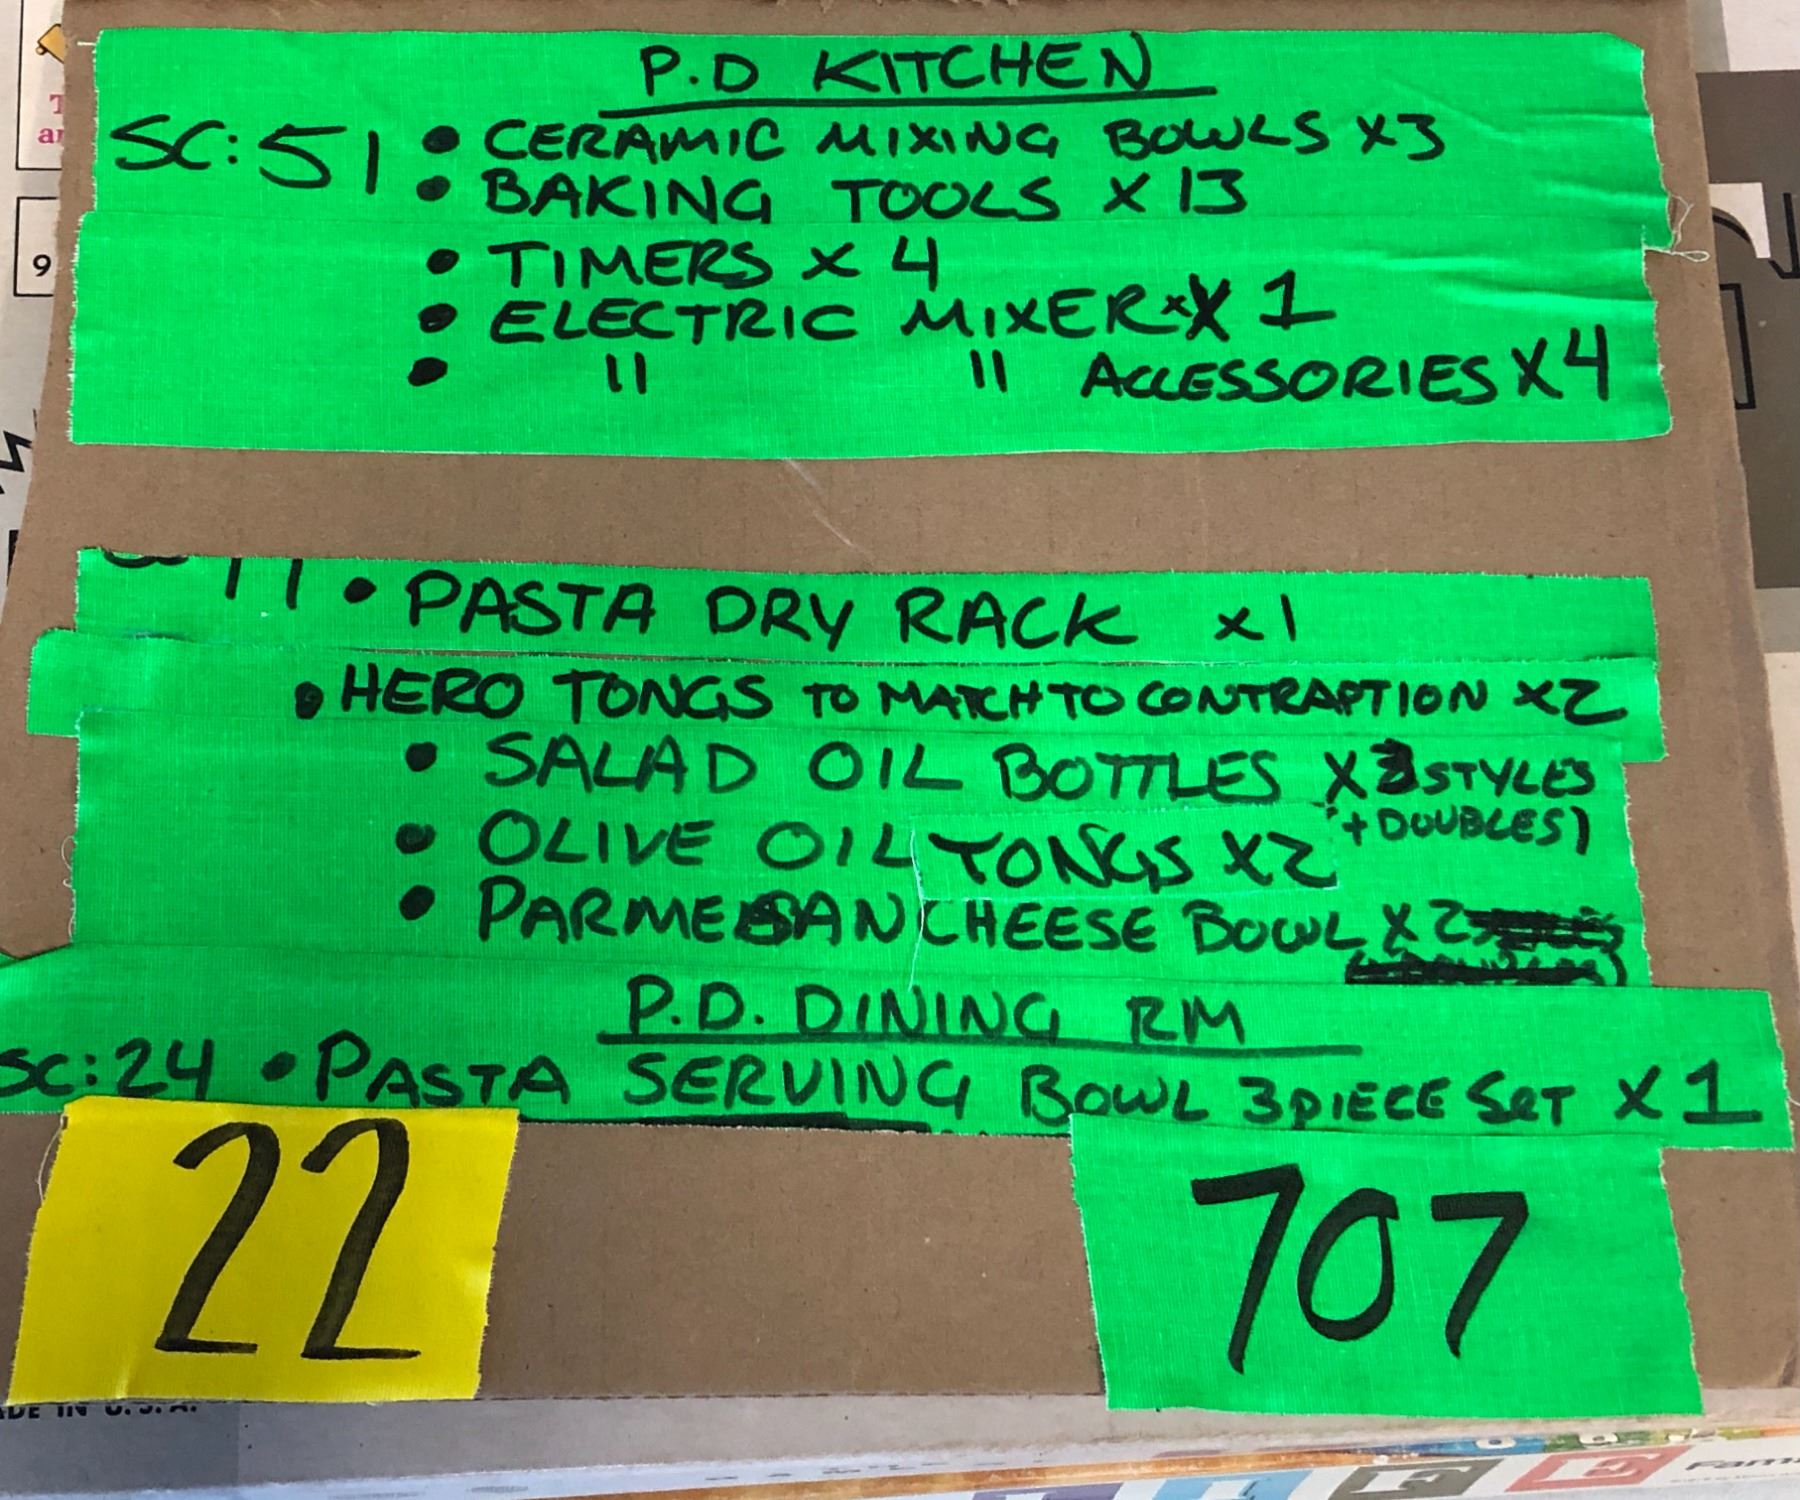 P.D KITCHEN
SC: 51 • CERAMIC MIXING BOWLS x3
• BAKING TOOLS x 13
• TIMERS x 4
• ELECTRIC MIXER x 1
• " " ACCESSORIES X4
• PASTA DRY RACK x1
• HERO TONGS TO MATCH TO CONTRAPTION x2
• SALAD OIL BOTTLES X 3 STYLES
+ DOUBLES)
• OLIVE OIL TONGS X2
• PARMESAN CHEESE BOWL X2
P.D. DINING RM
SC: 24 • PASTA SERVING BOWL 3 PIECE SET X 1
22
707
9
IN U.S.A.